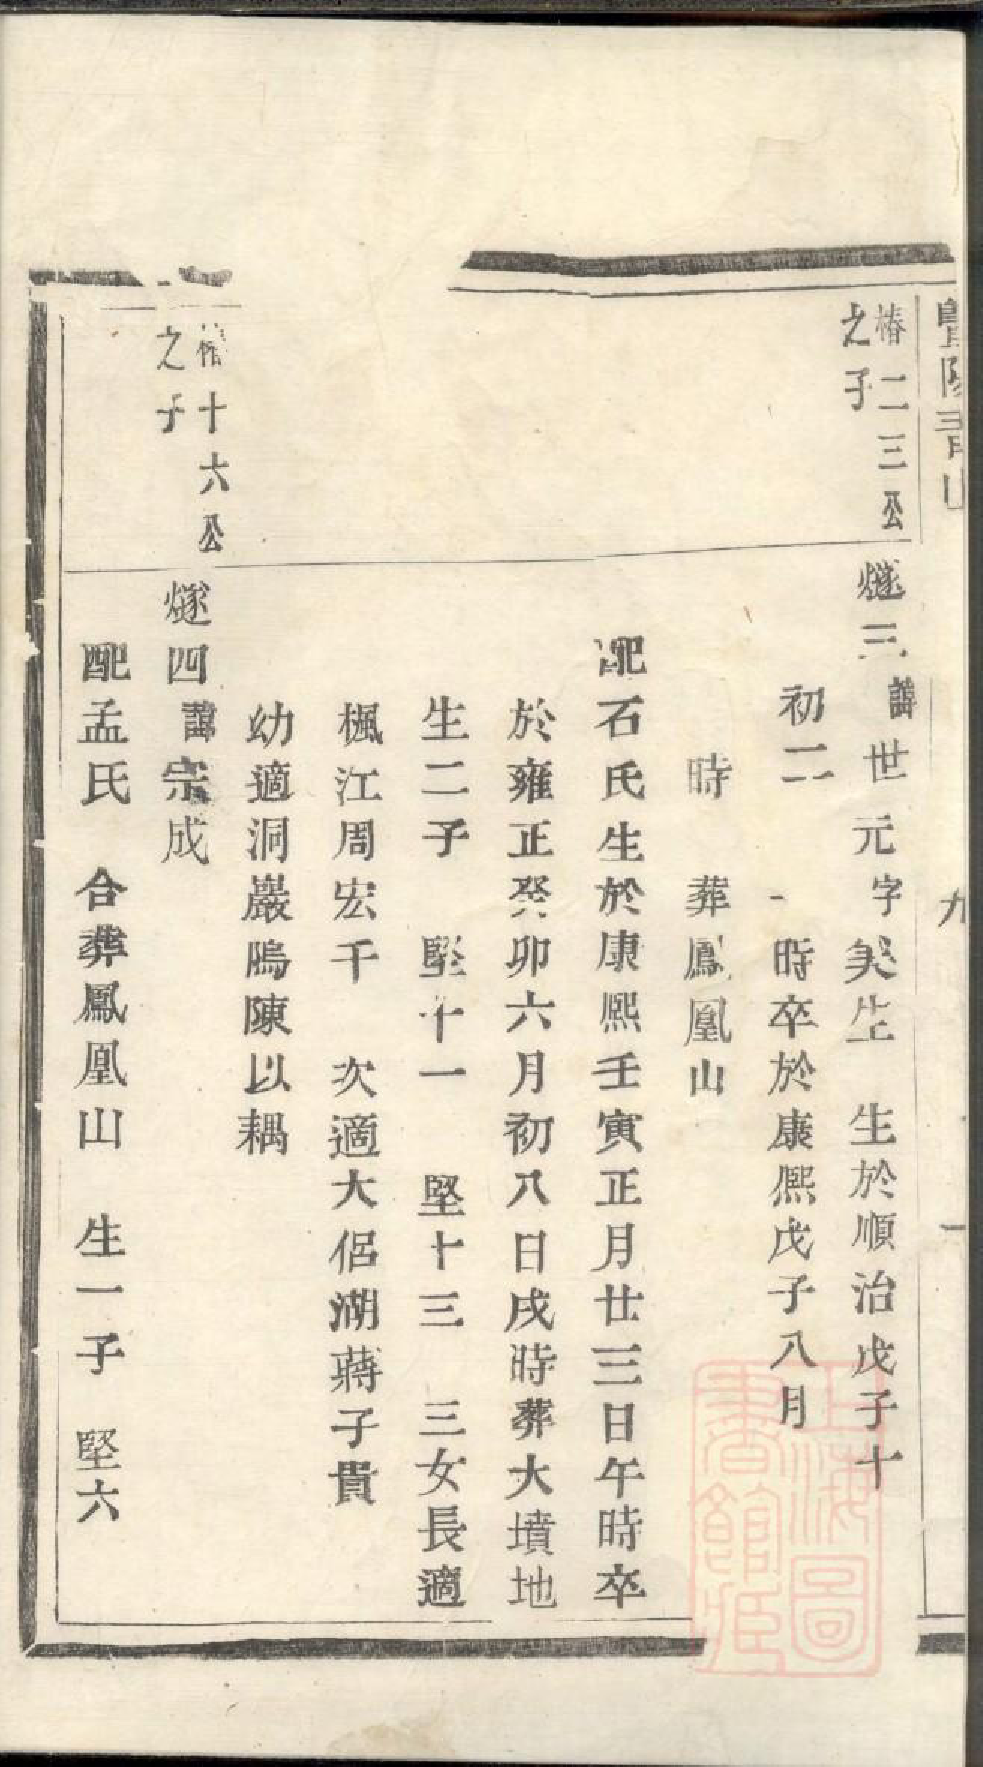 暨陽青山
九
一
椿二三公
之子
燧三 諱世元字美生 生於順治戊子十
初二 時卒於康熙戊子八月
時 葬鳳凰山
配石氏生於康熙壬寅正月廿三日午時卒
於雍正癸卯六月初八日戌時葬大墳地
生二子 堅十一 堅十三 三女長適
楓江周宏千 次適大侶湖蔣子貴
幼適洞巖鴫陳以耦
十六公
之子
燧四諱宗成
配孟氏 合葬鳳凰山 生一子 堅六
上海圖
書館藏